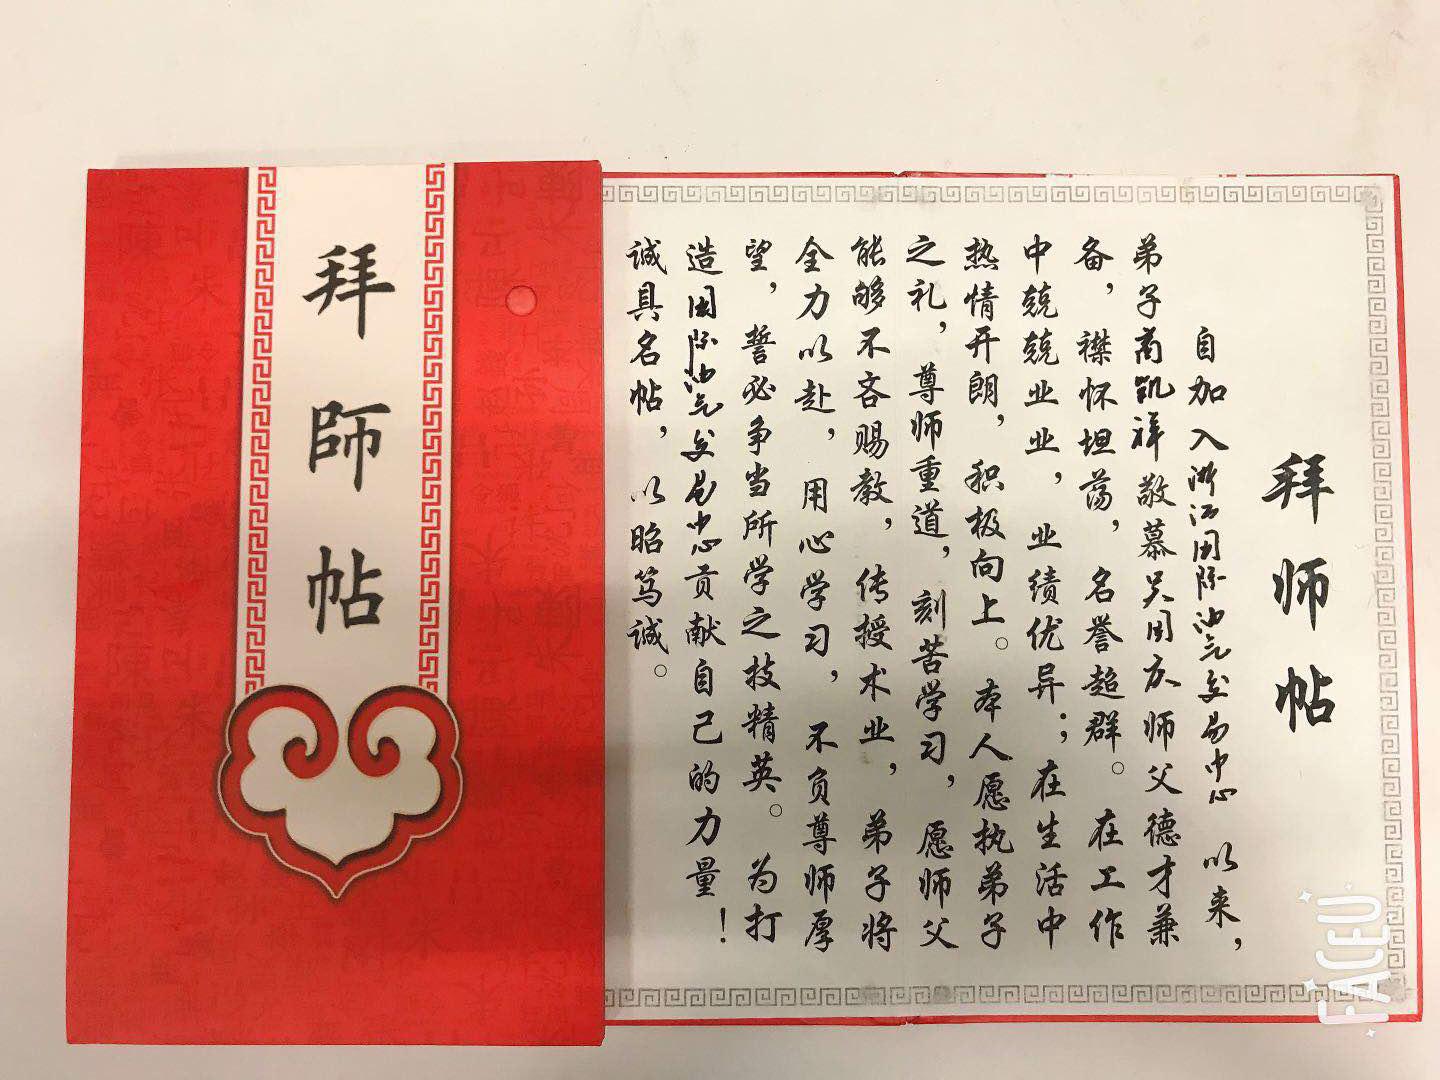 拜師帖
拜师帖
自加入浙江国际油气交易中心 以来，
弟子商凯祥敬慕吴国庆师父德才兼
备，襟怀坦荡，名誉超群。在工作
中兢兢业业，业绩优异；在生活中
热情开朗，积极向上。本人愿执弟子
之礼，尊师重道，刻苦学习，愿师父
能够不吝赐教，传授术业，弟子将
全力以赴，用心学习，不负尊师厚
望，誓必争当所学之技精英。为打
造国际油气交易中心贡献自己的力量！
诚具名帖，以昭笃诚。
FACEU